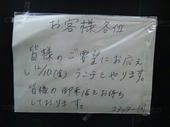 お客様各位
皆様のご要望にお応え
し 12/10(金)ランチをやります。
皆様の御来店をお待ち
しております。